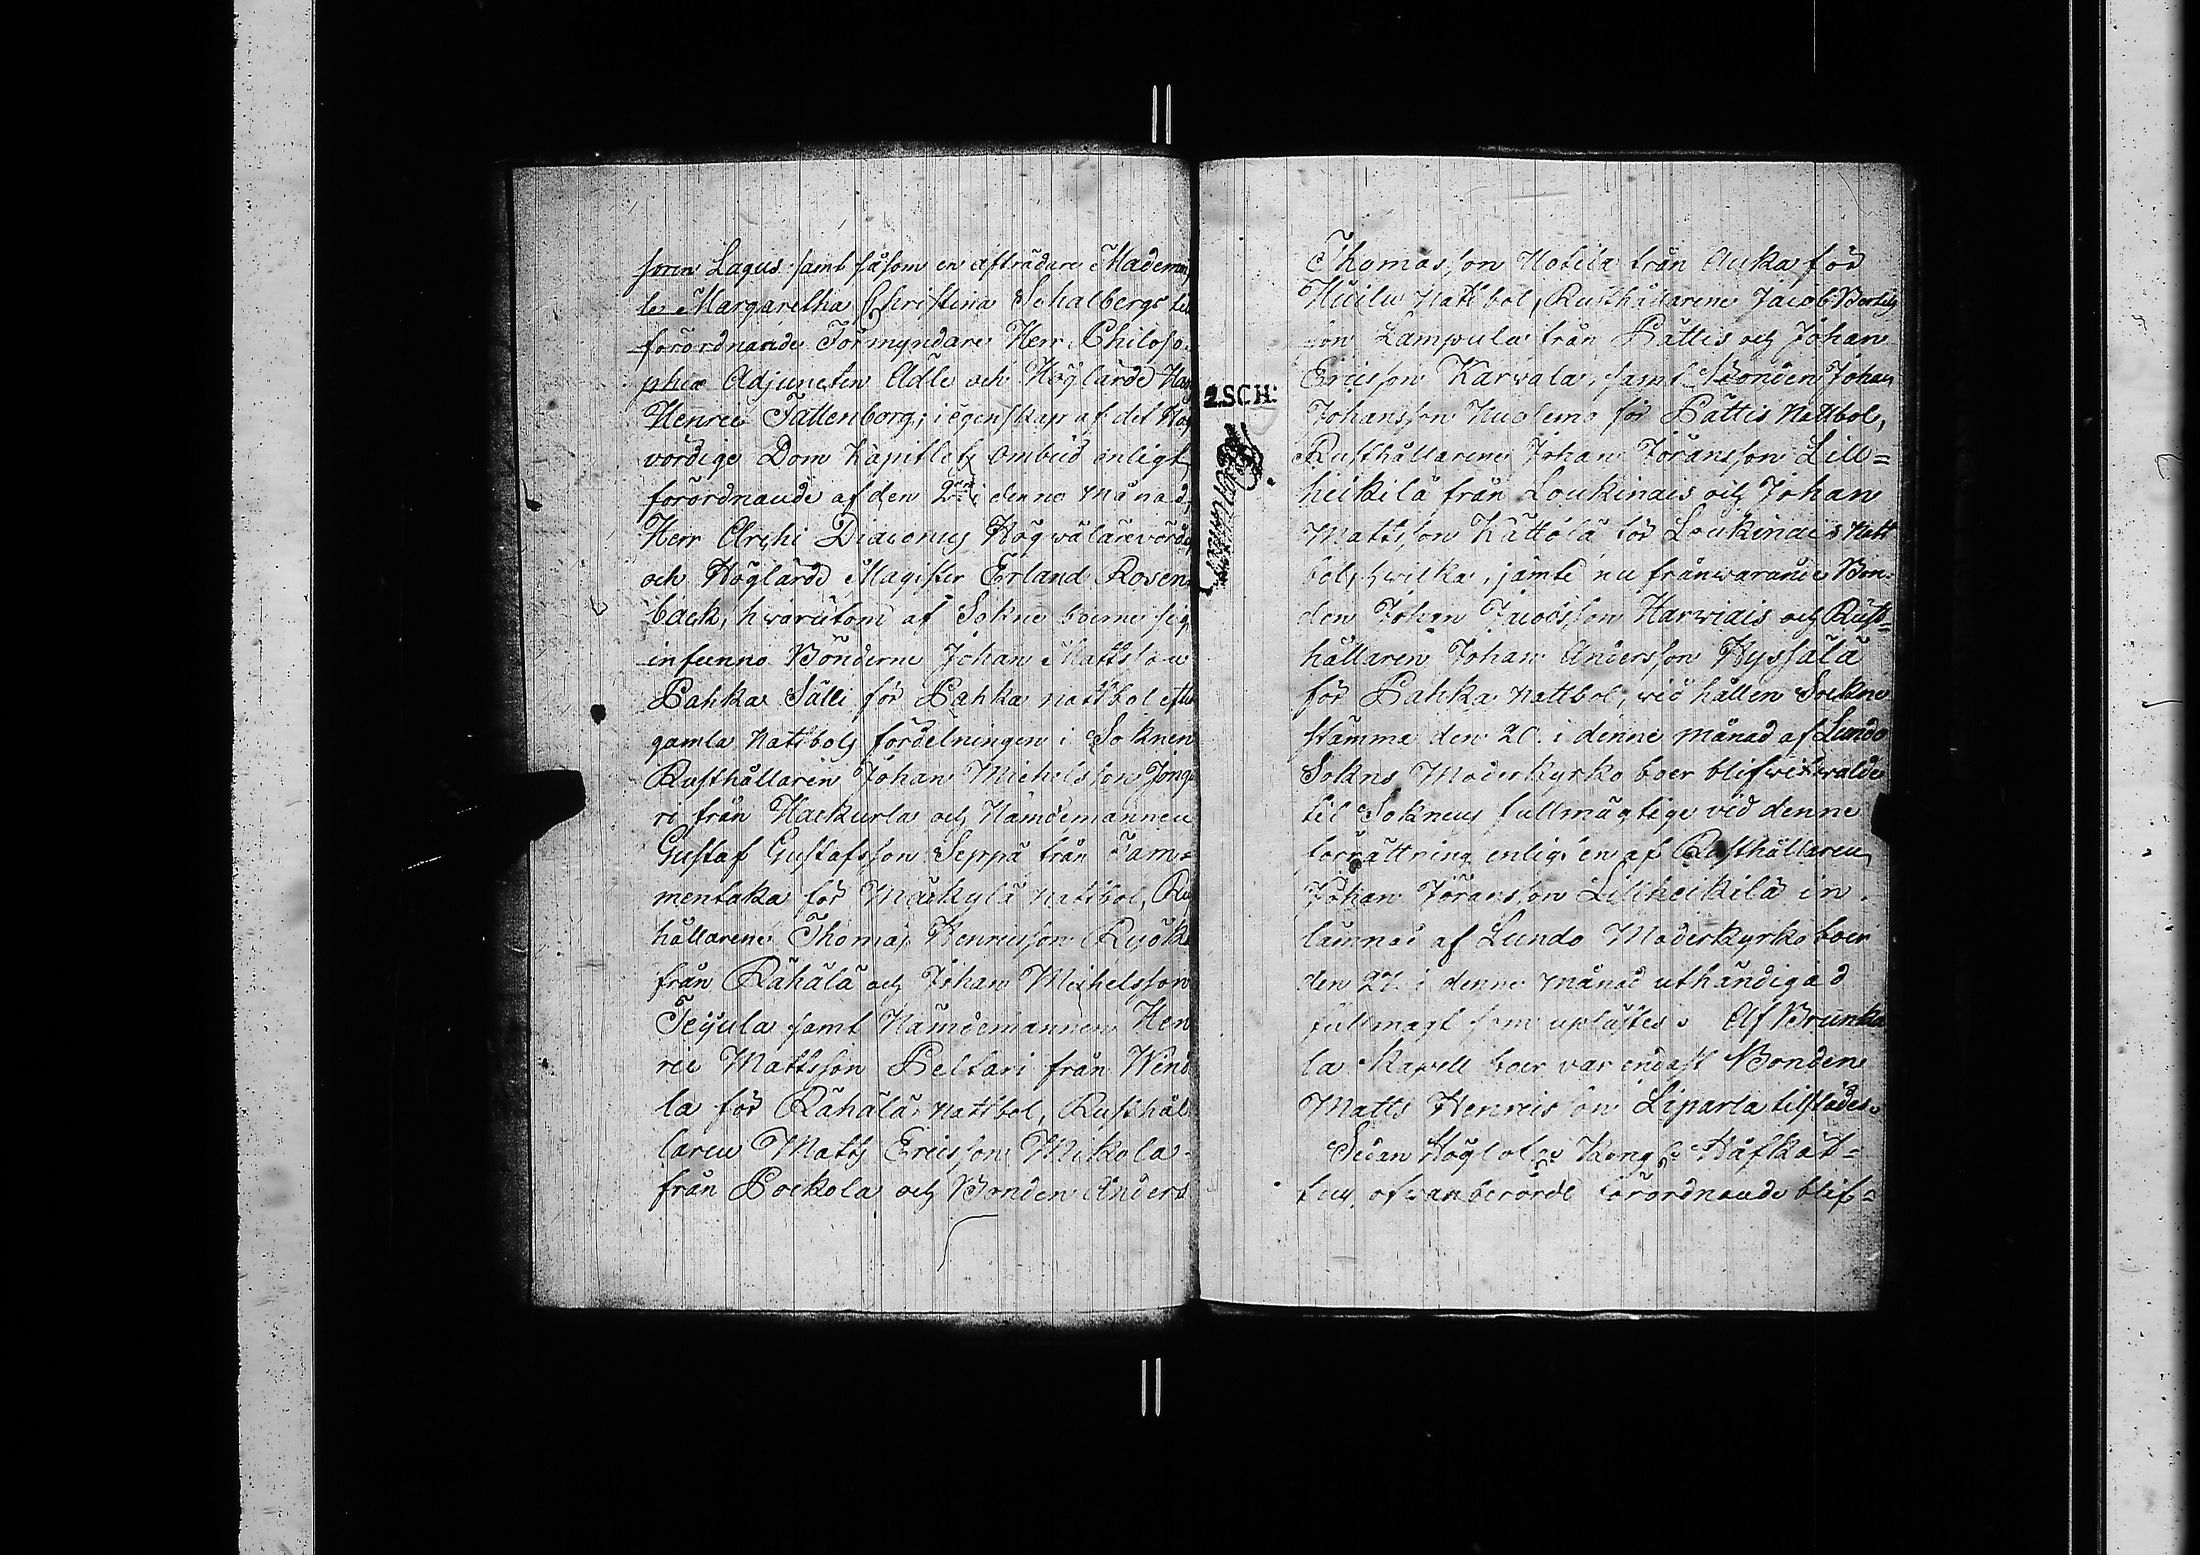 soren Lagus samt såsom en afträdare Mademoi
le Margaretha Christina Schalbergs til
förordnande Förmyndare Herr Philoso-
phiæ Adjuncten Ädle och Höglärde Han
Henric Tallenborg, i egenskap af det Hög
vördige Dom Kapitlets ombud enligt
förordnande af den 2dra i denne månad,
Herr Archi Diaconus Högwälärevördi
och Höglärde Magister Erland Rosen
back, hwarutom af Sokne boerne sig
infunno Bönderne Johan Mattsson
Pahka Sälli för Pahka nattbol efter
gamla Nattbols fördelningen i Soknen
Rusthållaren Johan Michelsson Jong
ri från Kackurla och Nämdemannen
Gustaf Gustafsson Seppä från Tam-
mentaka för Mäckylä nattbol, Ru
hållarene Thomas Henricsson Ryök
från Rähälä och Johan Michelsson
Teijula samt Nämdemannen Hen
ric Mattsson Peltari från Wend
la för Rähälä nattbol, Rusthål
laren Matts Ericsson Mikola
från Pockola och Bonden Anders
2.SCH:
Thomasson Notila från Auka för
Huilu Nattbol, Rusthållarene Jacob Bertils
son Lampula från Pättis och Johan
Ericsson Karvala, samt Bonden Johan
Johansson Nuolemo för Pättis Nattbol,
Rusthållarene Johan Jöransson Lill=
heikilä från Loukinais och Johan
Mattsson Kättölä för Loukinais Natt
bol, hwilka, jämte nu frånwarande Bon-
den Johan Jacobsson Harviais och Rust-
hållaren Johan Andersson Hyssälä
för Pahka Nattbol, vid hållen Sockne
stämma den 20. i denne månad af Lundo
Sokns Moderkyrko boer blifvit walde
til Soknens fullmägtige vid denne
förrättning enligt en af Rusthållaren
Johan Jöransson Lillheikilä in-
lämnad af Lundo Moderkyrko boer
den 27. i denne månad uthändigad
fullmagt som uplästes. Af Prunka
la Kapell boer var endast Bonden
Matts Henricsson Liparla tilstädes.
Sedan Höglofl. Kongl. Håfrät-
tens ofwanberörde förordnande blif=